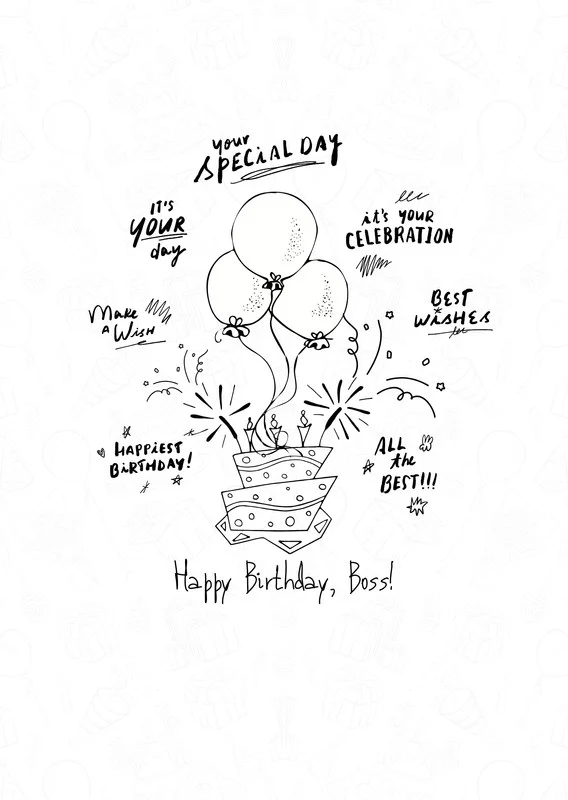 your
SPECiAL DAY
IT'S
YOUR
day
it's YOUR
CELEBRATION
Make
A WisH
BEST
WiSHES
HAPPIEST
BiRTHDAY!
ALL
the
BEST!!!
Happy Birthday, Boss!